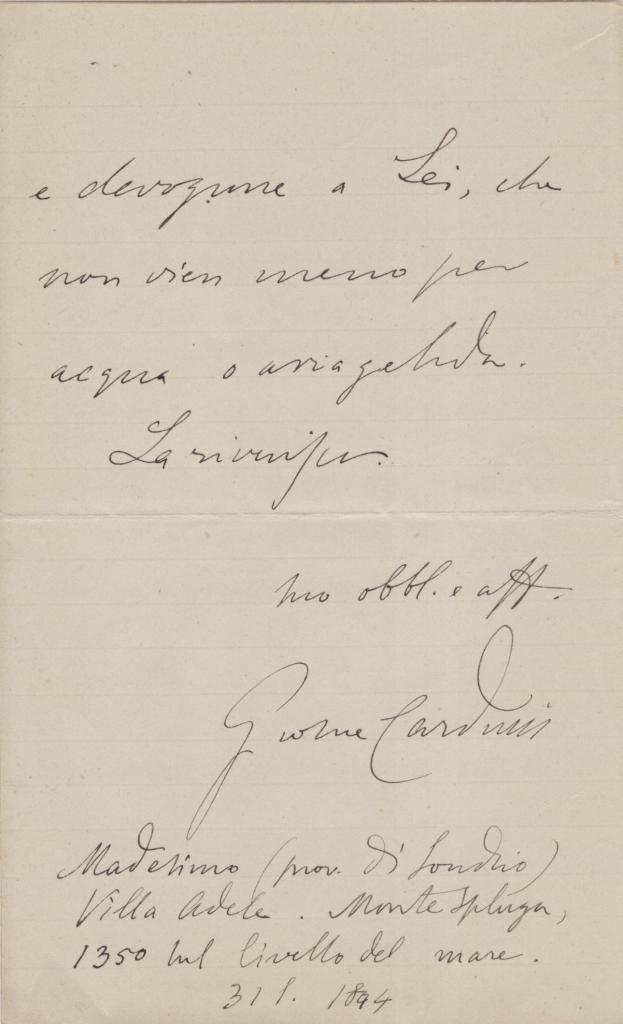 e devozione a Lei, che
non vien meno per
acqua o aria gelida.
La riverisco.
suo obbl. e aff.
Giosue Carducci
Madesimo (prov. di Sondrio)
Villa Adele. Monte Spluga,
1350 sul livello del mare.
31 l. 1894